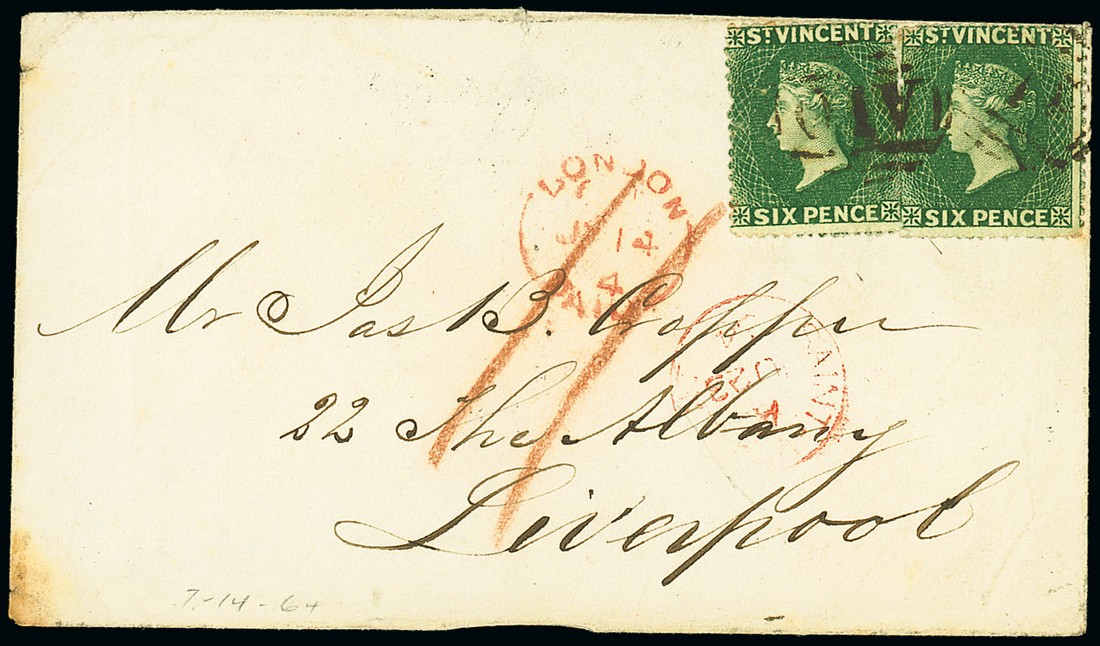 ST VINCENT ST VINCENT
SIX PENCE SIX PENCE
LONDON
14
Mr Jas B. Cropper
22 The Albany
Liverpool
7-14-64